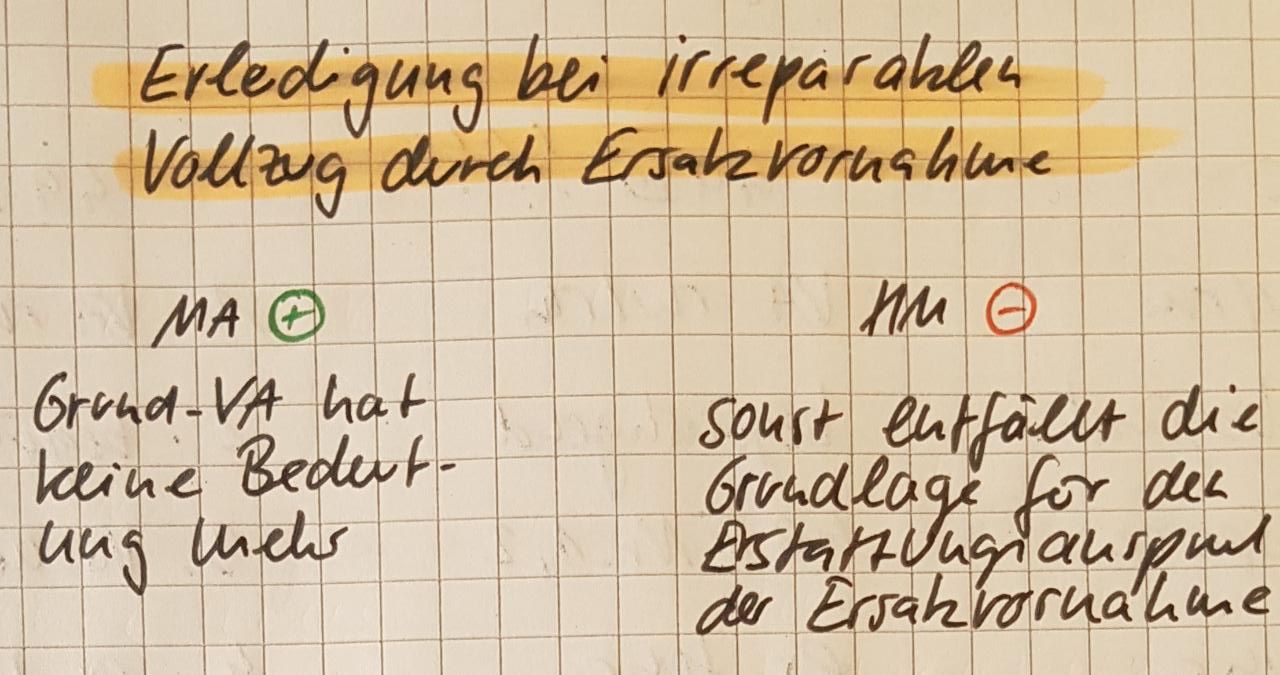 Erledigung bei irreparablen
Vollzug durch Ersatzvornahme
MA +
HM -
Grund-VA hat
keine Bedeut-
ung mehr
sonst entfällt die
Grundlage für den
Erstattungsanspruch
der Ersatzvornahme